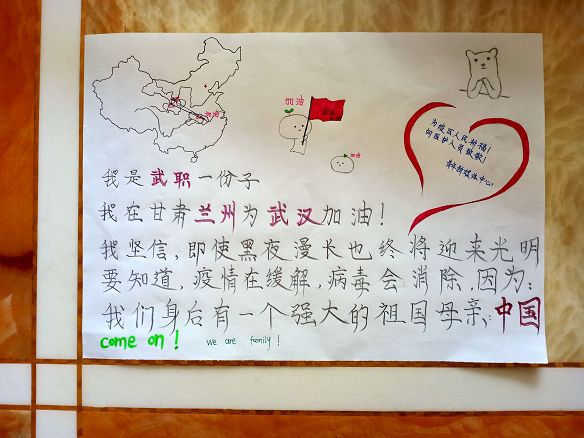 加油
加油
加油
为疫区人民祈福!
向医护人员致敬!
我是武职一份子
我在甘肃兰州为武汉加油!
我坚信,即使黑夜漫长也终将迎来光明
要知道,疫情在缓解,病毒会消除,因为:
我们身后有一个强大的祖国母亲:中国
come on!
we are family!